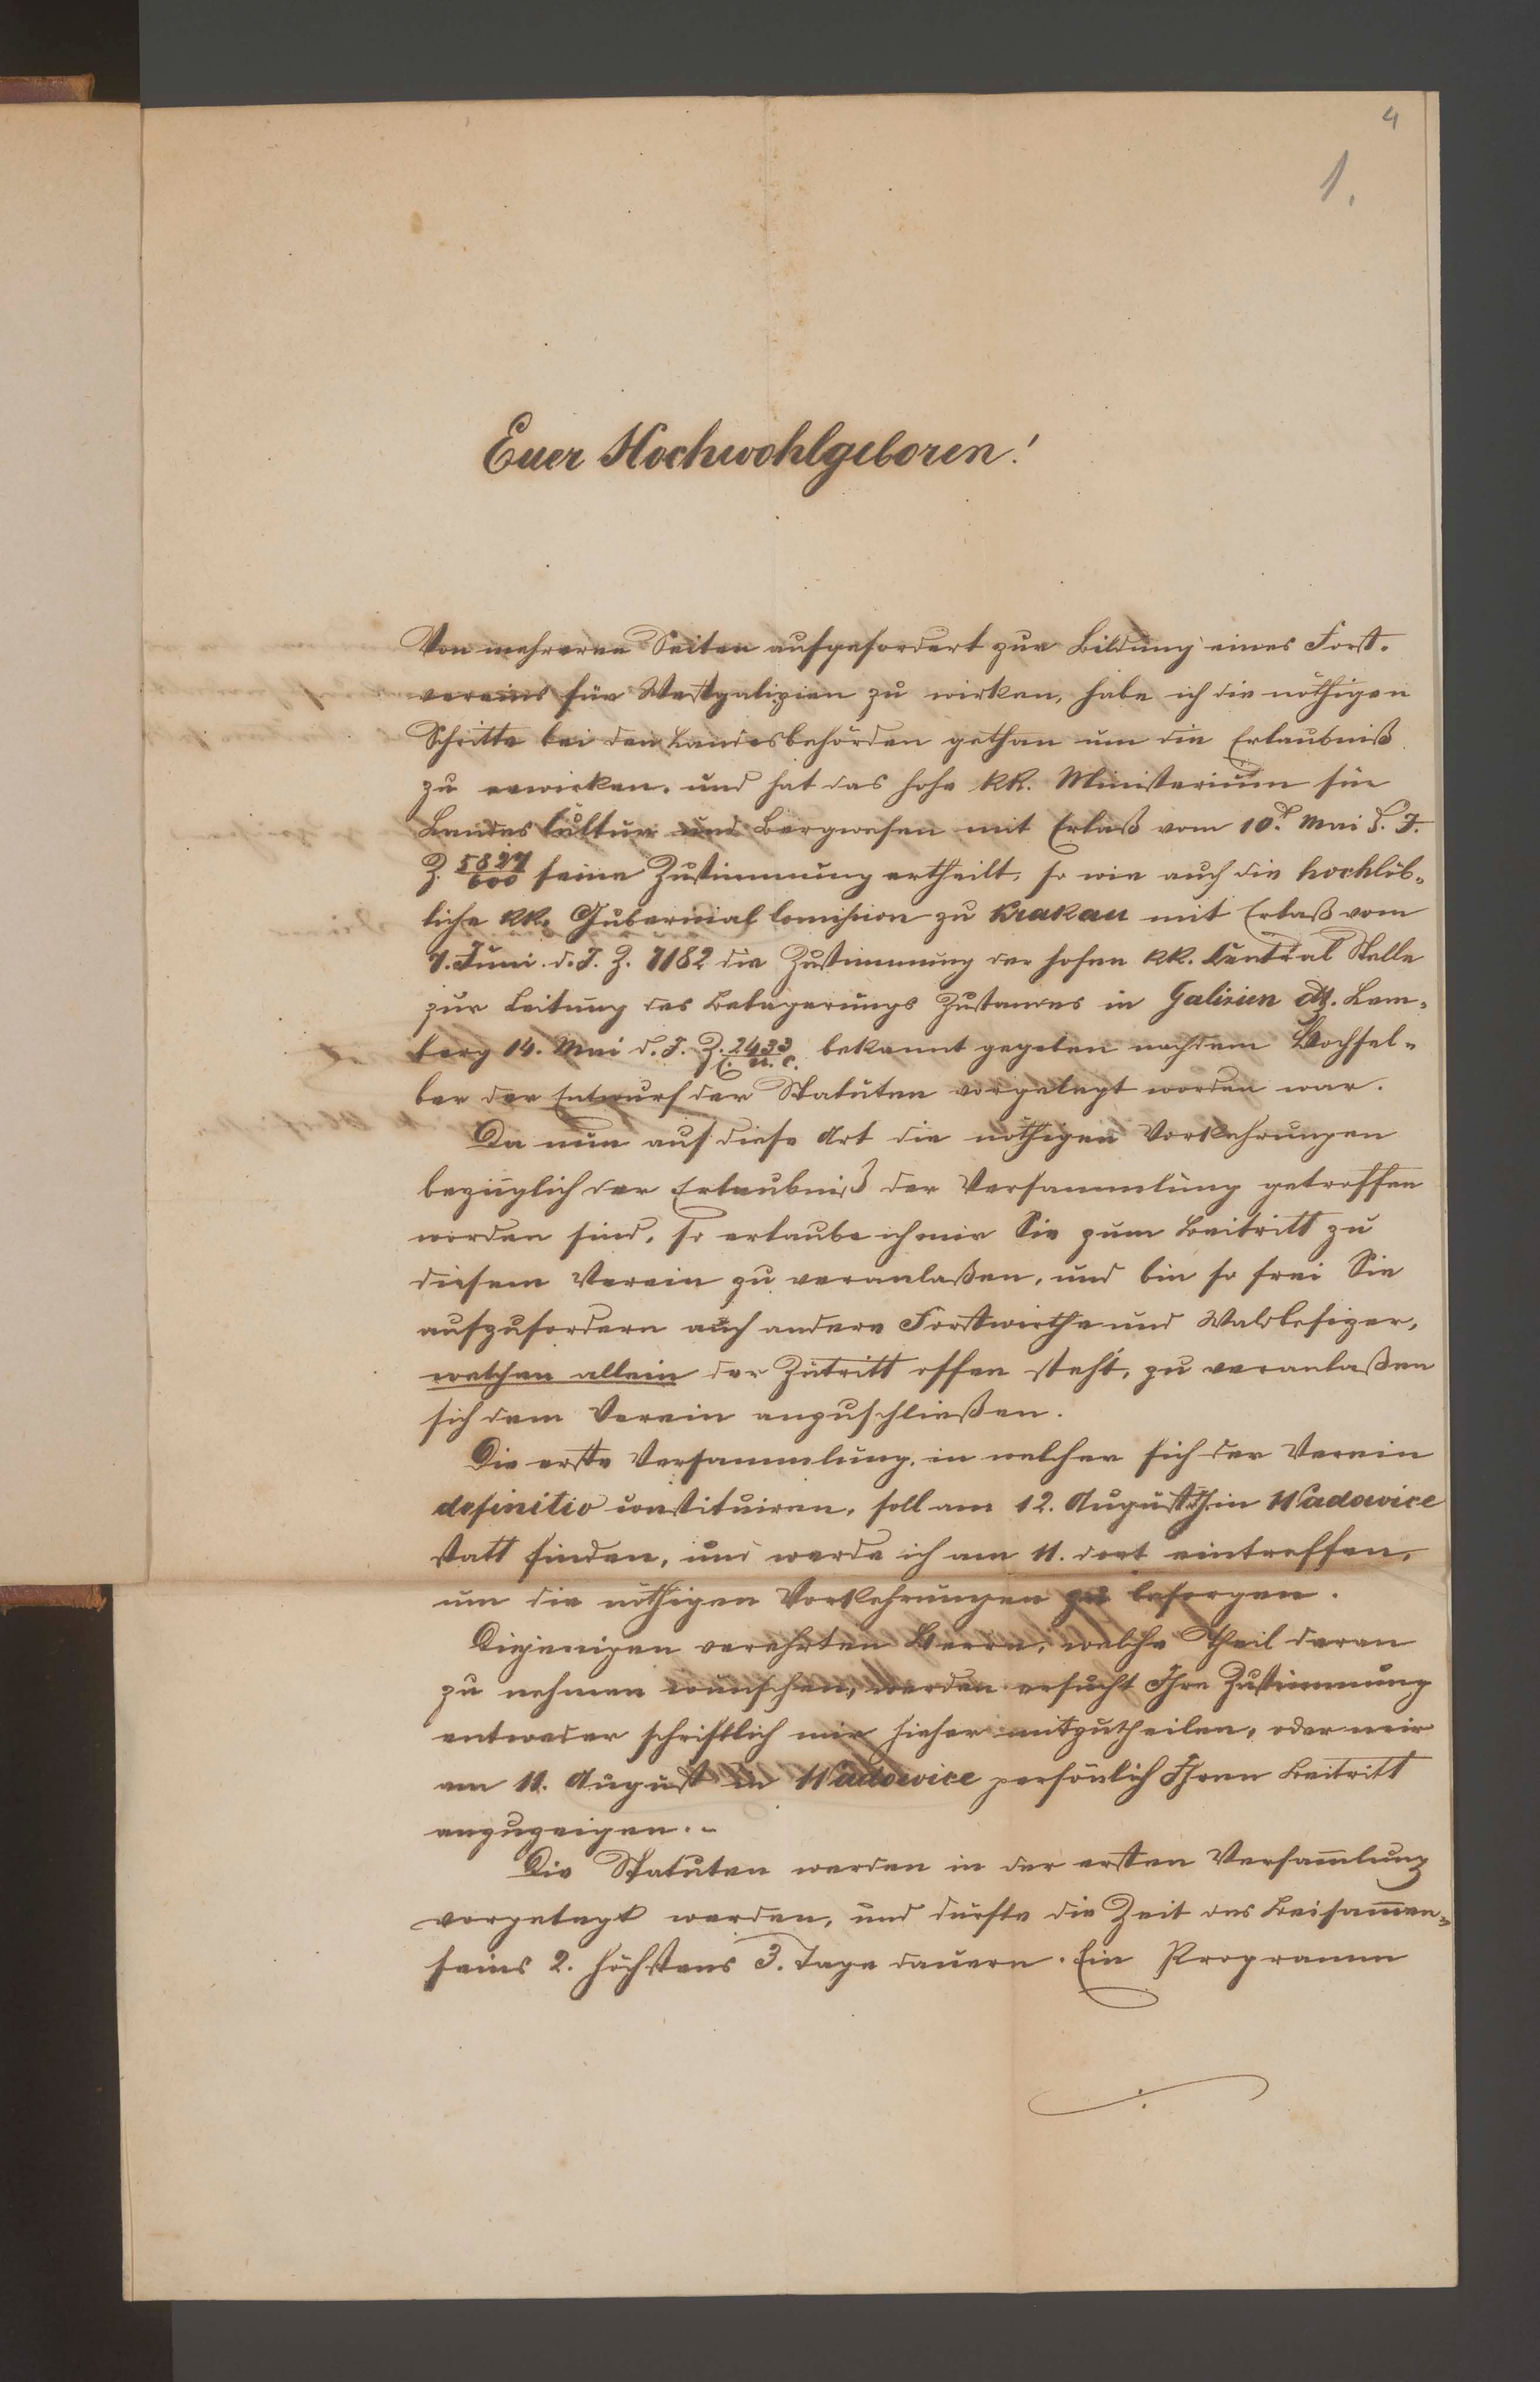 4
1.
Euer Hochwohlgeboren!
Von mehreren Seiten aufgefordert zur Bildung eines Forst-
vereins für Westgalizien zu wirken, habe ich die nöthigen
Schritte bei den Landesbehörden gethan um die Erlaubniß
zu erwirken, und hat das hohe kk. Ministerium für
Landes Cultur und Bergwesen mit Erlaß vom 10. Mai d. J.
Z. 5827/600 seine Zustimmung ertheilt, so wie auch die hochlöb-
liche kk. Gubernial Comission zu Krakau mit Erlaß vom
7. Juni d. J. Z. 7182 die Zustimmung der hohen kk. Central Stelle
zur Leitung des Belagerungs Zustandes in Galizien dtt. Lem-
berg 14. Mai d. J. Z. 2433 bekannt gegeben nachdem Hochsel-
ber der Entwurf der Statuten vorgelegt worden war.
Da nun auf diese Art die nöthigen Vorkehrungen
bezüglich der Erlaubniß der Versammlung getroffen
worden sind, so erlaube ich mir Sie zum Beitritt zu
diesem Verein zu veranlaßen, und bin so frei Sie
aufzufordern auch andere Forstwirthe und Waldbesizer,
welchen allein der Zutritt offen steht, zu veranlaßen
sich dem Verein anzuschließen.
Die erste Versammlung, in welcher sich der Verein
definitiv constituiren, soll am 12. August in Wadowice
statt finden, und werde ich am 11. dort eintreffen,
um die nöthigen Vorkehrungen zu besorgen.
Diejenigen verehrten Herrn, welche Theil daran
zu nehmen wünschen, werden ersucht Ihre Zustimmung
entweder schriftlich mir hieher mitzutheilen, oder mir
am 11. August in Wadowice persönlich Ihren Beitritt
anzuzeigen.-
Die Statuten werden in der ersten Versam̄lung
vorgelegt werden, und dürfte die Zeit des Beisam̄en-
seins 2. höchstens 3. Tage dauern. Ein Programm